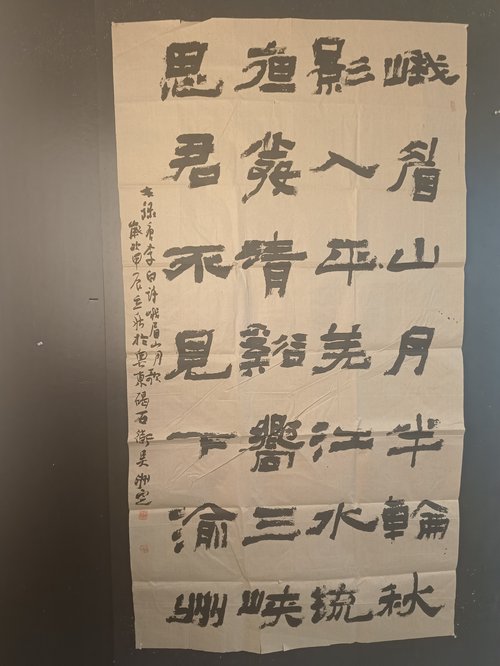 峨眉山月半輪秋
影入平羌江水流
夜發清谿嚮三峽
思君不見下渝州
右錄唐李白詩峨眉山月歌
歲次甲辰立秋於粵東碣石衛吳